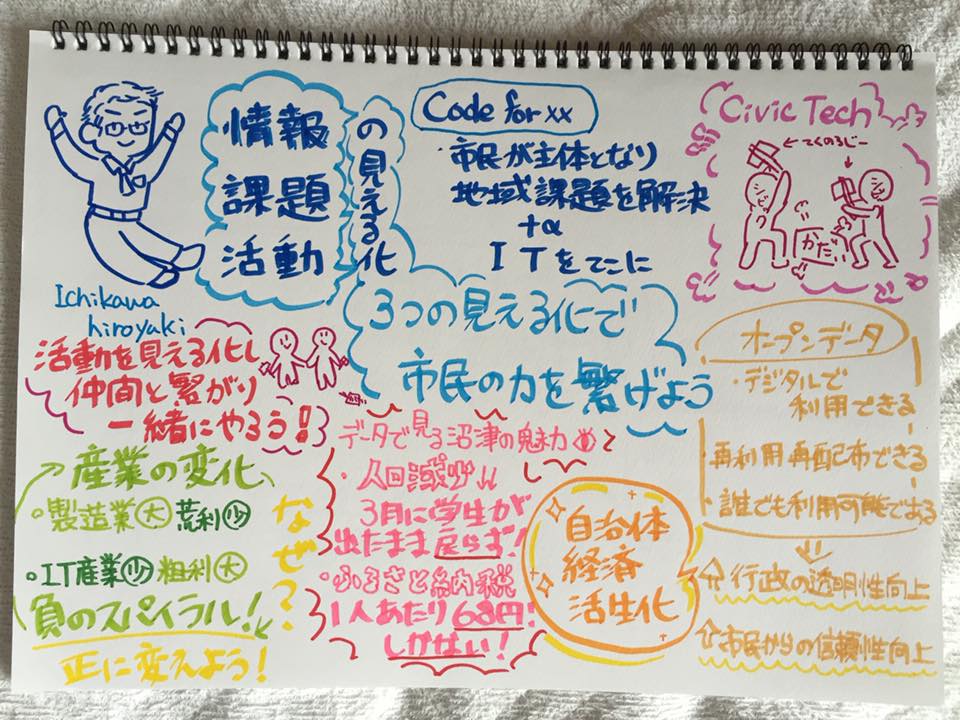 情報
課題
活動
の見える化
Ichikawa
hiroyaki
Code for xx
・市民が主体となり
地域課題を解決
+α
ITをてこに
Civic Tech
←てくのろじー
↓
かだい
3つの見える化で
市民の力を繋げよう
活動を見える化し
仲間と繋がり
一緒にやろう!
産業の変化
・製造業大 荒利少
・IT産業少 粗利大
負のスパイラル!
正に変えよう!
なぜ?
データで見る沼津の魅力
・人口減少↓↓
3月に学生が
出たまま戻らず!
・ふるさと納税
1人あたり68円!
しかない!
自治体
経済
活性化
オープンデータ
・デジタルで
利用できる
・再利用再配布できる
・誰でも利用可能である
⇩
⇧行政の透明性向上
⇧市民からの信頼性向上